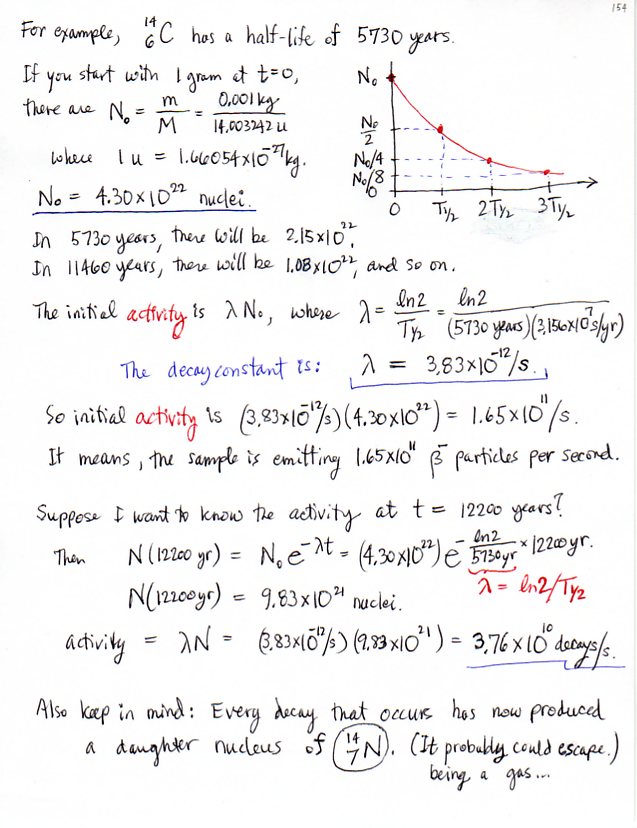 154
For example, ¹⁴₆C has a half-life of 5730 years.
If you start with 1 gram at t=0,
there are N₀ = m/M = 0.001kg/14.003242 u
where 1 u = 1.66054×10⁻²⁷kg.
N₀ = 4.30×10²² nuclei.
N₀
N₀/2
N₀/4
N₀/8
0
0 T½ 2T½ 3T½
In 5730 years, there will be 2.15×10²².
In 11460 years, there will be 1.08×10²², and so on.
The initial activity is λN₀, where λ = ln2/T½ = ln2/(5730 years)(3.156×10⁷s/yr)
The decay constant is: λ = 3.83×10⁻¹²/s.
So initial activity is (3.83×10⁻¹²/s)(4.30×10²²) = 1.65×10¹¹/s.
It means, the sample is emitting 1.65×10¹¹ β⁻ particles per second.
Suppose I want to know the activity at t = 12200 years?
Then N(12200 yr) = N₀e^(-λt) = (4.30×10²²)e^(-ln2/5730yr × 12200yr).
λ = ln2/T½
N(12200yr) = 9.83×10²¹ nuclei.
activity = λN = (3.83×10⁻¹²/s)(9.83×10²¹) = 3.76×10¹⁰ decays/s.
Also keep in mind: Every decay that occurs has now produced
a daughter nucleus of ¹⁴₇N. (It probably could escape.)
being a gas...